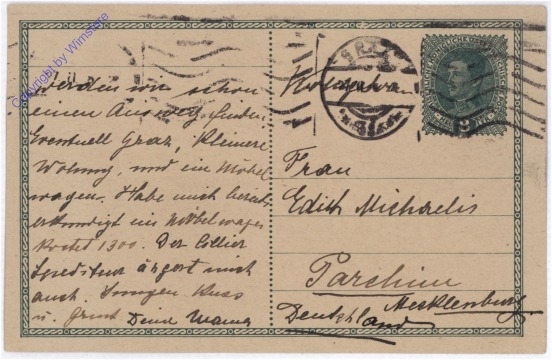 Copyright by Wimstore
werden wir schon
einen Ausweg finden
Eventuell Graz, kleinere
Wohnung, und ein Möbel
wagen. Habe mich bereits
erkundigt ein Möbelwagen
kostet 1300. Der
Spediteur ärgert mich
auch. Innigen Kuss
u. Gruss Deine Mama
GRAZ
Frau
Edith Michaelis
Parchim
Mecklenburg
Deutschland